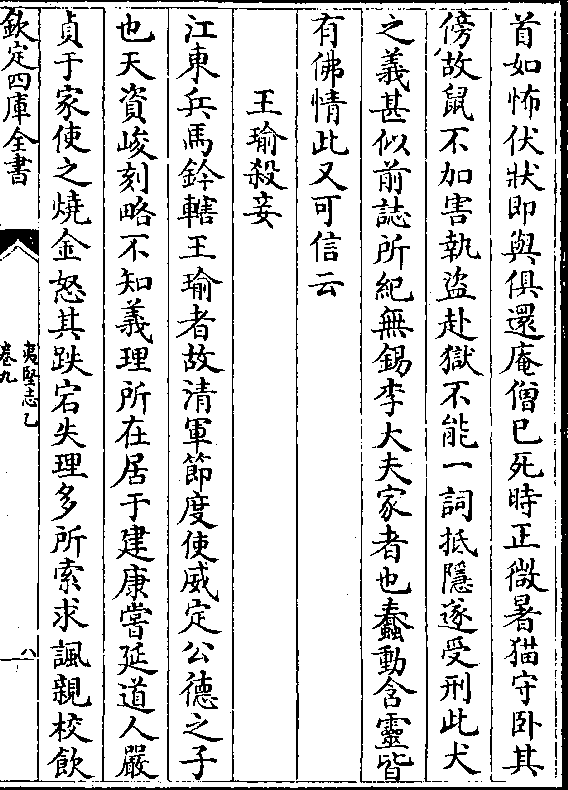 首如怖伏狀即與俱還庵僧已死時正微暑猫守卧其
傍故鼠不加害執盜赴獄不能一詞抵隱遂受刑此犬
之義甚似前誌所紀無錫李大夫家者也蠢動含靈皆
有佛情此又可信云
王瑜殺妾
江東兵馬鈐轄王瑜者故清軍節度使威定公德之子
也天資峻刻略不知義理所在居于建康嘗延道人嚴
貞于家使之燒金怒其跌宕失理多所索求諷親校飲
欽定四庫全書
夷堅志乙
卷九
八